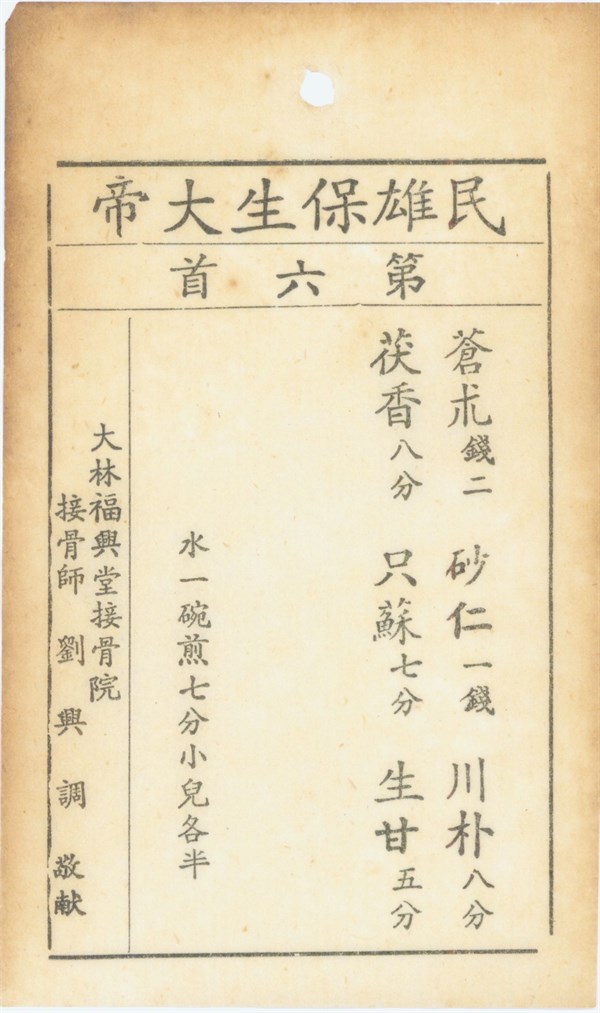 民雄保生大帝
第六首
蒼朮錢二　砂仁一錢　川朴八分
茯香八分　只蘇七分　生甘五分
水一碗煎七分小兒各半
大林福興堂接骨院
接骨師　劉興調　敬献